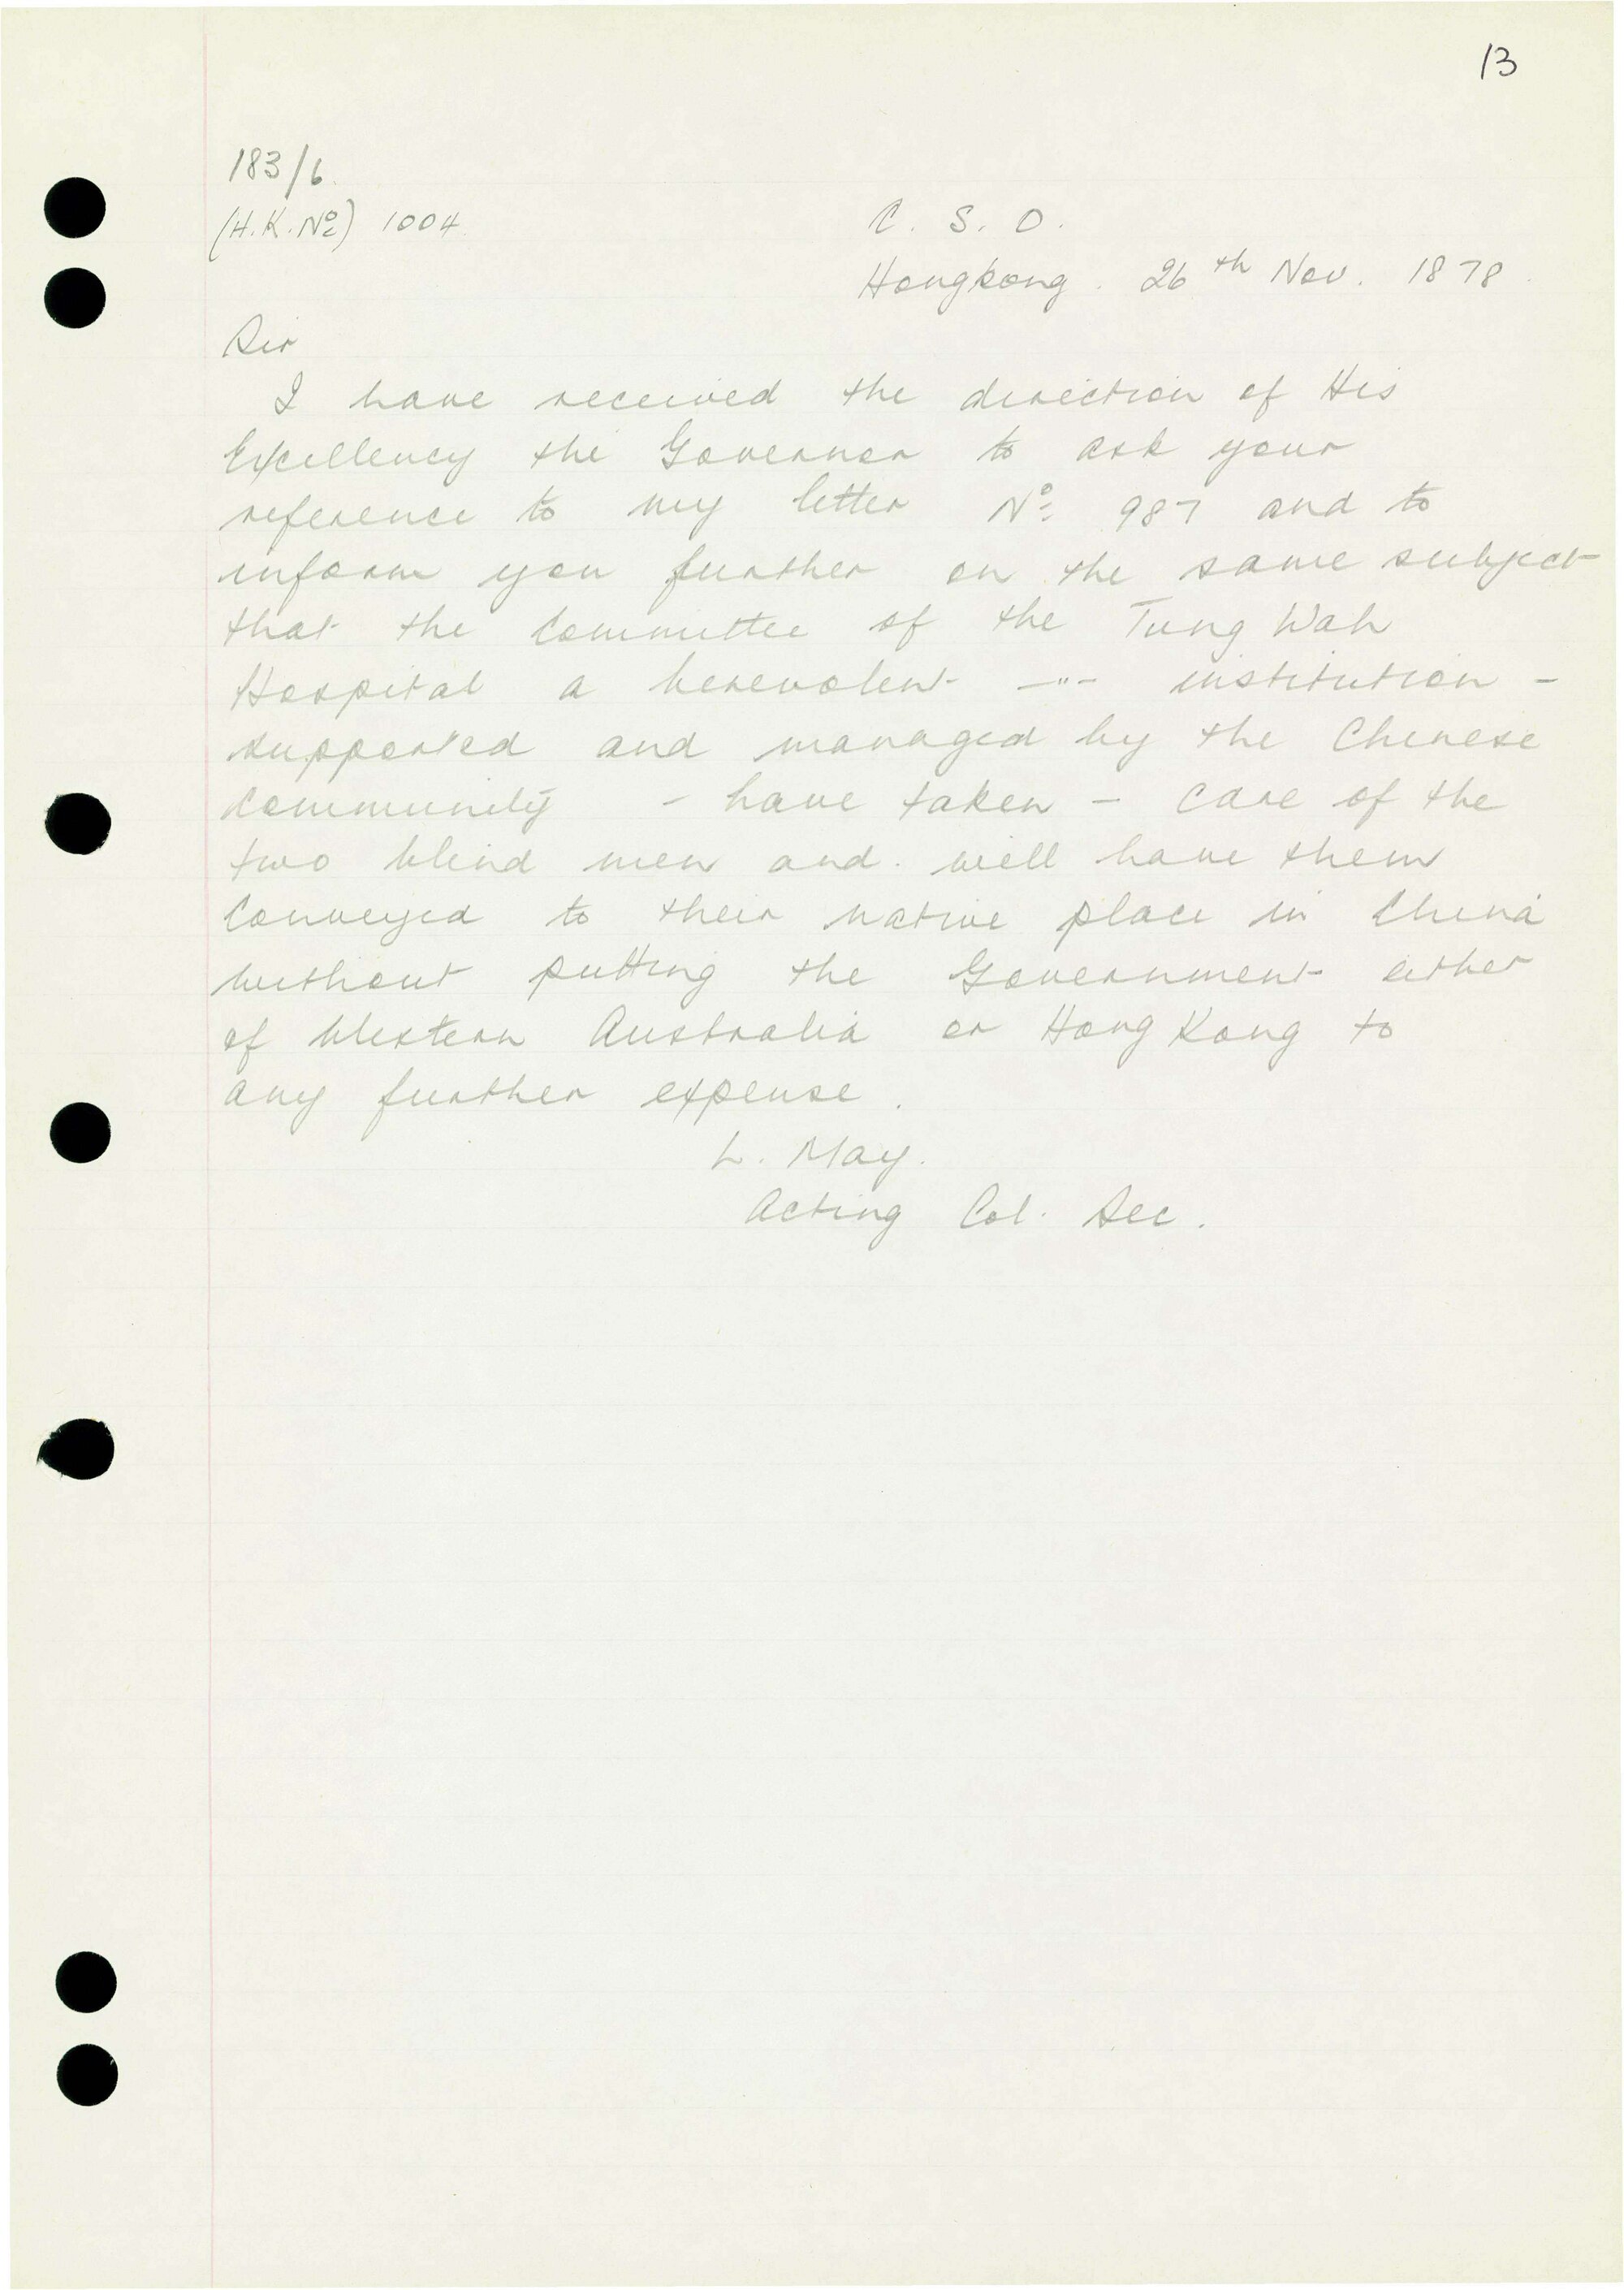 13
183/6.
(H.K. Nº) 1004
C. S. O.
Hongkong. 26th Nov. 1878.
Sir
I have received the direction of His
Excellency the Governor to ask your
reference to my letter Nº 987 and to
inform you further on the same subject
that the Committee of the Tung Wah
Hospital a benevolent -"- institution -
supported and managed by the Chinese
Community - have taken - care of the
two blind men and. will have them
Conveyed to their native place in China
without putting the Government either
of Western Australia or Hong Kong to
any further expense.
L. May.
Acting Col. Sec.